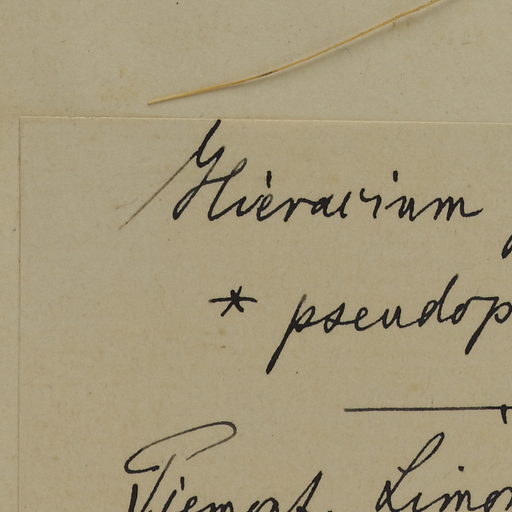 Hieracium
* pseudop
Piemont. Limon